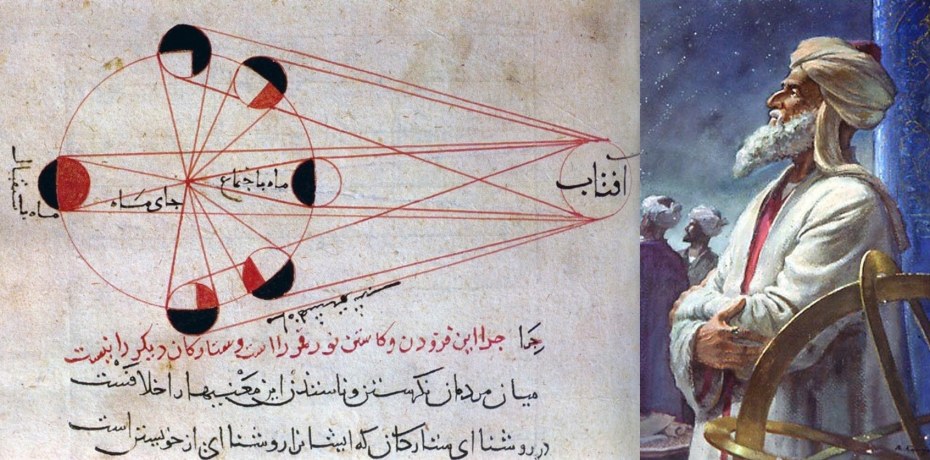 افتاب
ماه باجتماع
جای ماه
ماه باستقبال
چرا این فزودن و کاستن نور قمر را است و ستارگان دیکر را نیست
میان مردمان نکرستن و این را خلافست
در روشنای ستارکان که ایشانرا روشنای از خویشتن است